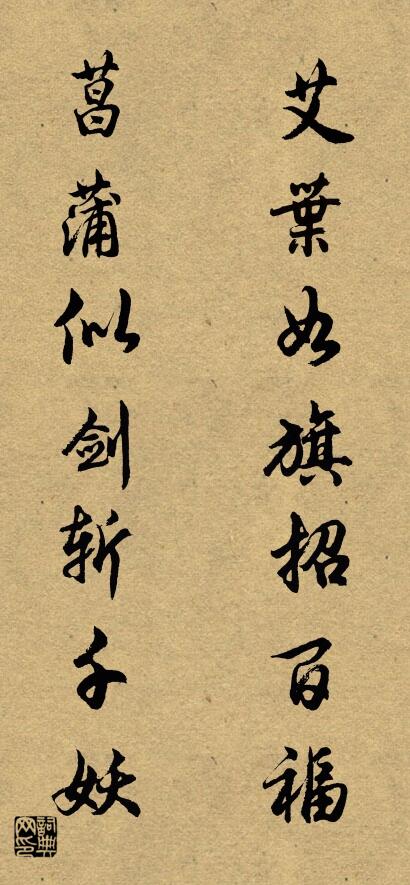 艾葉如旗招百福
菖蒲似劍斬千妖
詞典网印